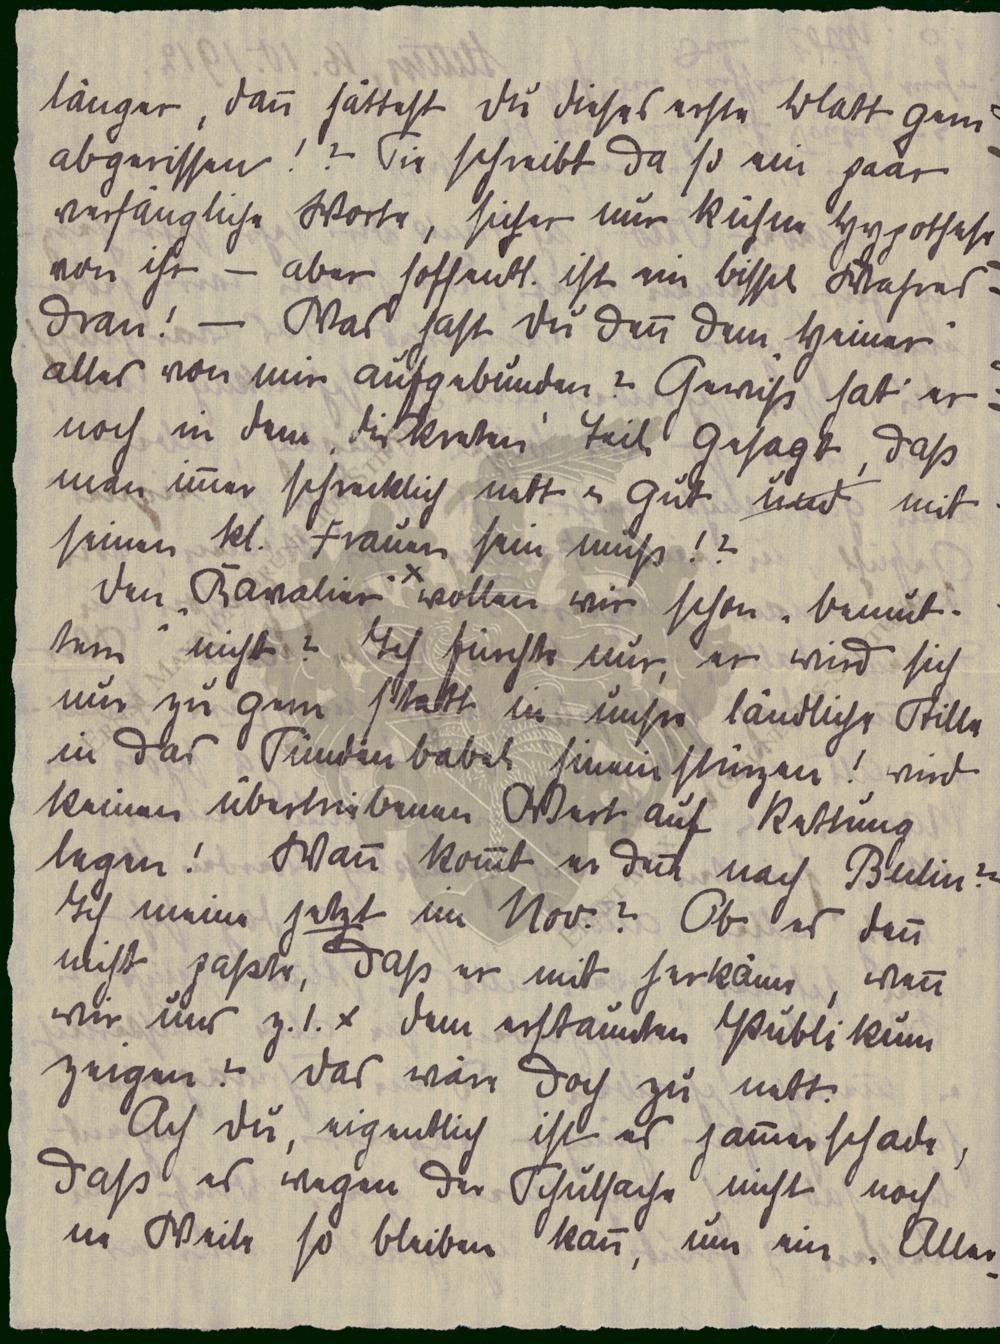 länger, dañ hättest Du dieses erste Blatt gern
abgerissen!? Sie schreibt da so ein paar
verfängliche Worte, sicher nur kühne Hypothese
von ihr — aber hoffentl. ist ein bissel Wahres
dran! — Was hast Du deñ dem „Heiner"
alles von mir aufgebunden? Gewiß hat er
noch in dem „diskreten" Teil gesagt, daß
man im̅er schrecklich nett u. gut und mit
seinen kl. Frauen sein muß!?
Den „Kavalier" x wollen wir schon „bemut-
tern" nicht? Ich fürchte nur, er wird sich
nur zu gern statt in unsre ländliche Stille
in das Sündenbabel hineinstürzen! wird
keinen übertriebenen Wert auf Rettung
legen! Wañ kom̅t er deñ nach Berlin?
Ich meine jetzt im Nov.? Ob es deñ
nicht paßte, daß er mit herkäme, weñ
wir uns z. 1. x dem erstaunten Publikum
zeigen? Das wäre doch zu nett.
Ach Du, eigentlich ist es jam̅erschade,
daß es wegen der Schulsache nicht noch
ne Weile so bleiben kañ, um ein „Aller-